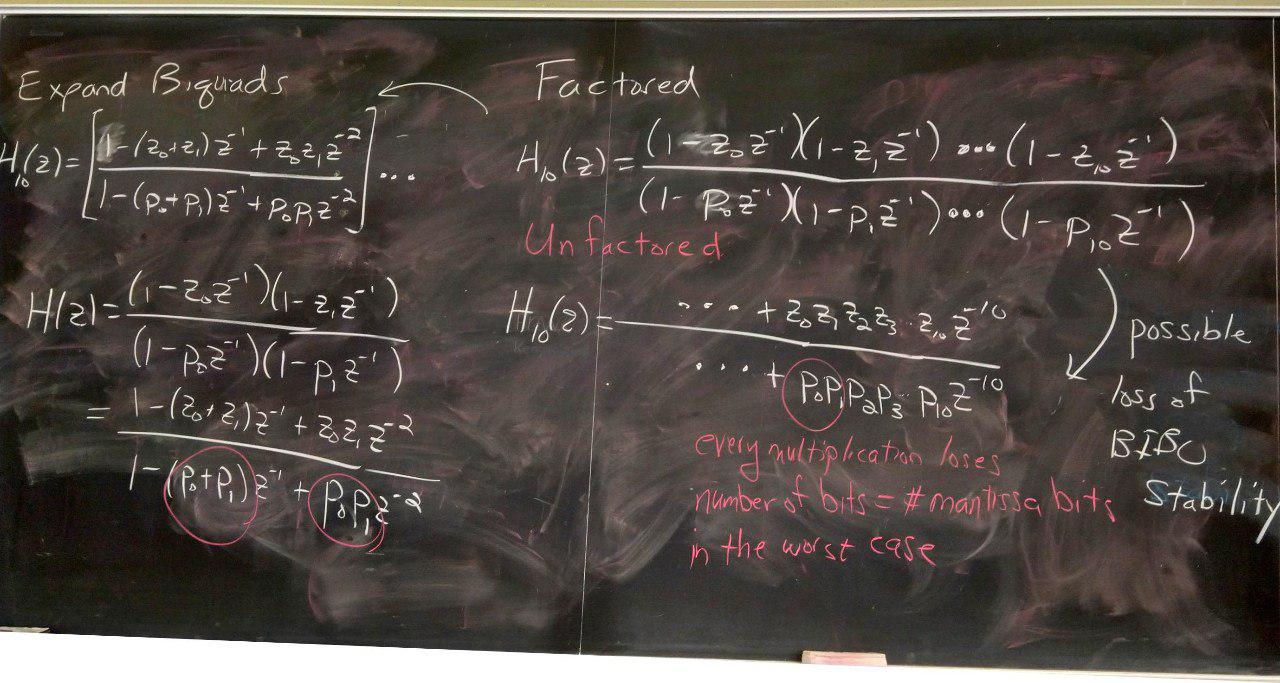 Expand Biquads
H₁₀(z) = [ (1-(z₀+z₁)z⁻¹ + z₀z₁z⁻²) / (1-(p₀+p₁)z⁻¹ + p₀p₁z⁻²) ] ...
H(z) = (1-z₀z⁻¹)(1-z₁z⁻¹) / (1-p₀z⁻¹)(1-p₁z⁻¹)
= 1-(z₀+z₁)z⁻¹ + z₀z₁z⁻² / 1-(p₀+p₁)z⁻¹ + p₀p₁z⁻²
Factored
H₁₀(z) = (1-z₀z⁻¹)(1-z₁z⁻¹) ... (1-z₁₀z⁻¹) / (1-p₀z⁻¹)(1-p₁z⁻¹) ... (1-p₁₀z⁻¹)
Unfactored
H₁₀(z) = ... + z₀z₁z₂z₃ .. z₁₀z⁻¹⁰ / ... + p₀p₁p₂p₃ p₁₀z⁻¹⁰
possible
loss of
BIBO
Stability
every multiplication loses
number of bits = # mantissa bits
in the worst case